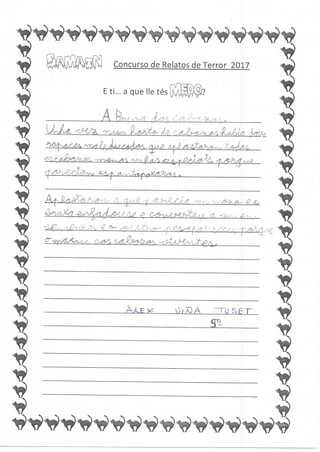 SAMAIN Concurso de Relatos de Terror 2017
E ti... a que lle tés MEDO?
A Bruxa das cabazas.
Unha vez nun horto de cabazas había dous
rapaces maleducados que aplastaron todas
as cabazas menos unhas especiais porque
parecían espantapaxaros.
Aplastaron a que parecía un mono e a
bruxa enfadouse e converteu a un en
e o outro desapareceu porque
o matou cas cabazas viventes.
ALEX VIDA TUSET
5º